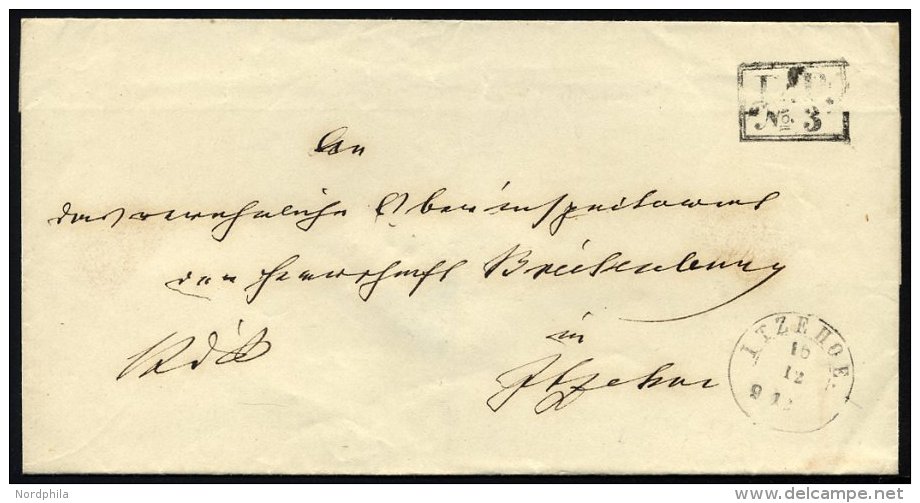 L.P.
№ 3
An
das verehrliche Oberinspectorat
der Herrschaft Breitenburg
in
Itzehoe
ITZEHOE.
16
12
Nordphila
www.delcampe.net